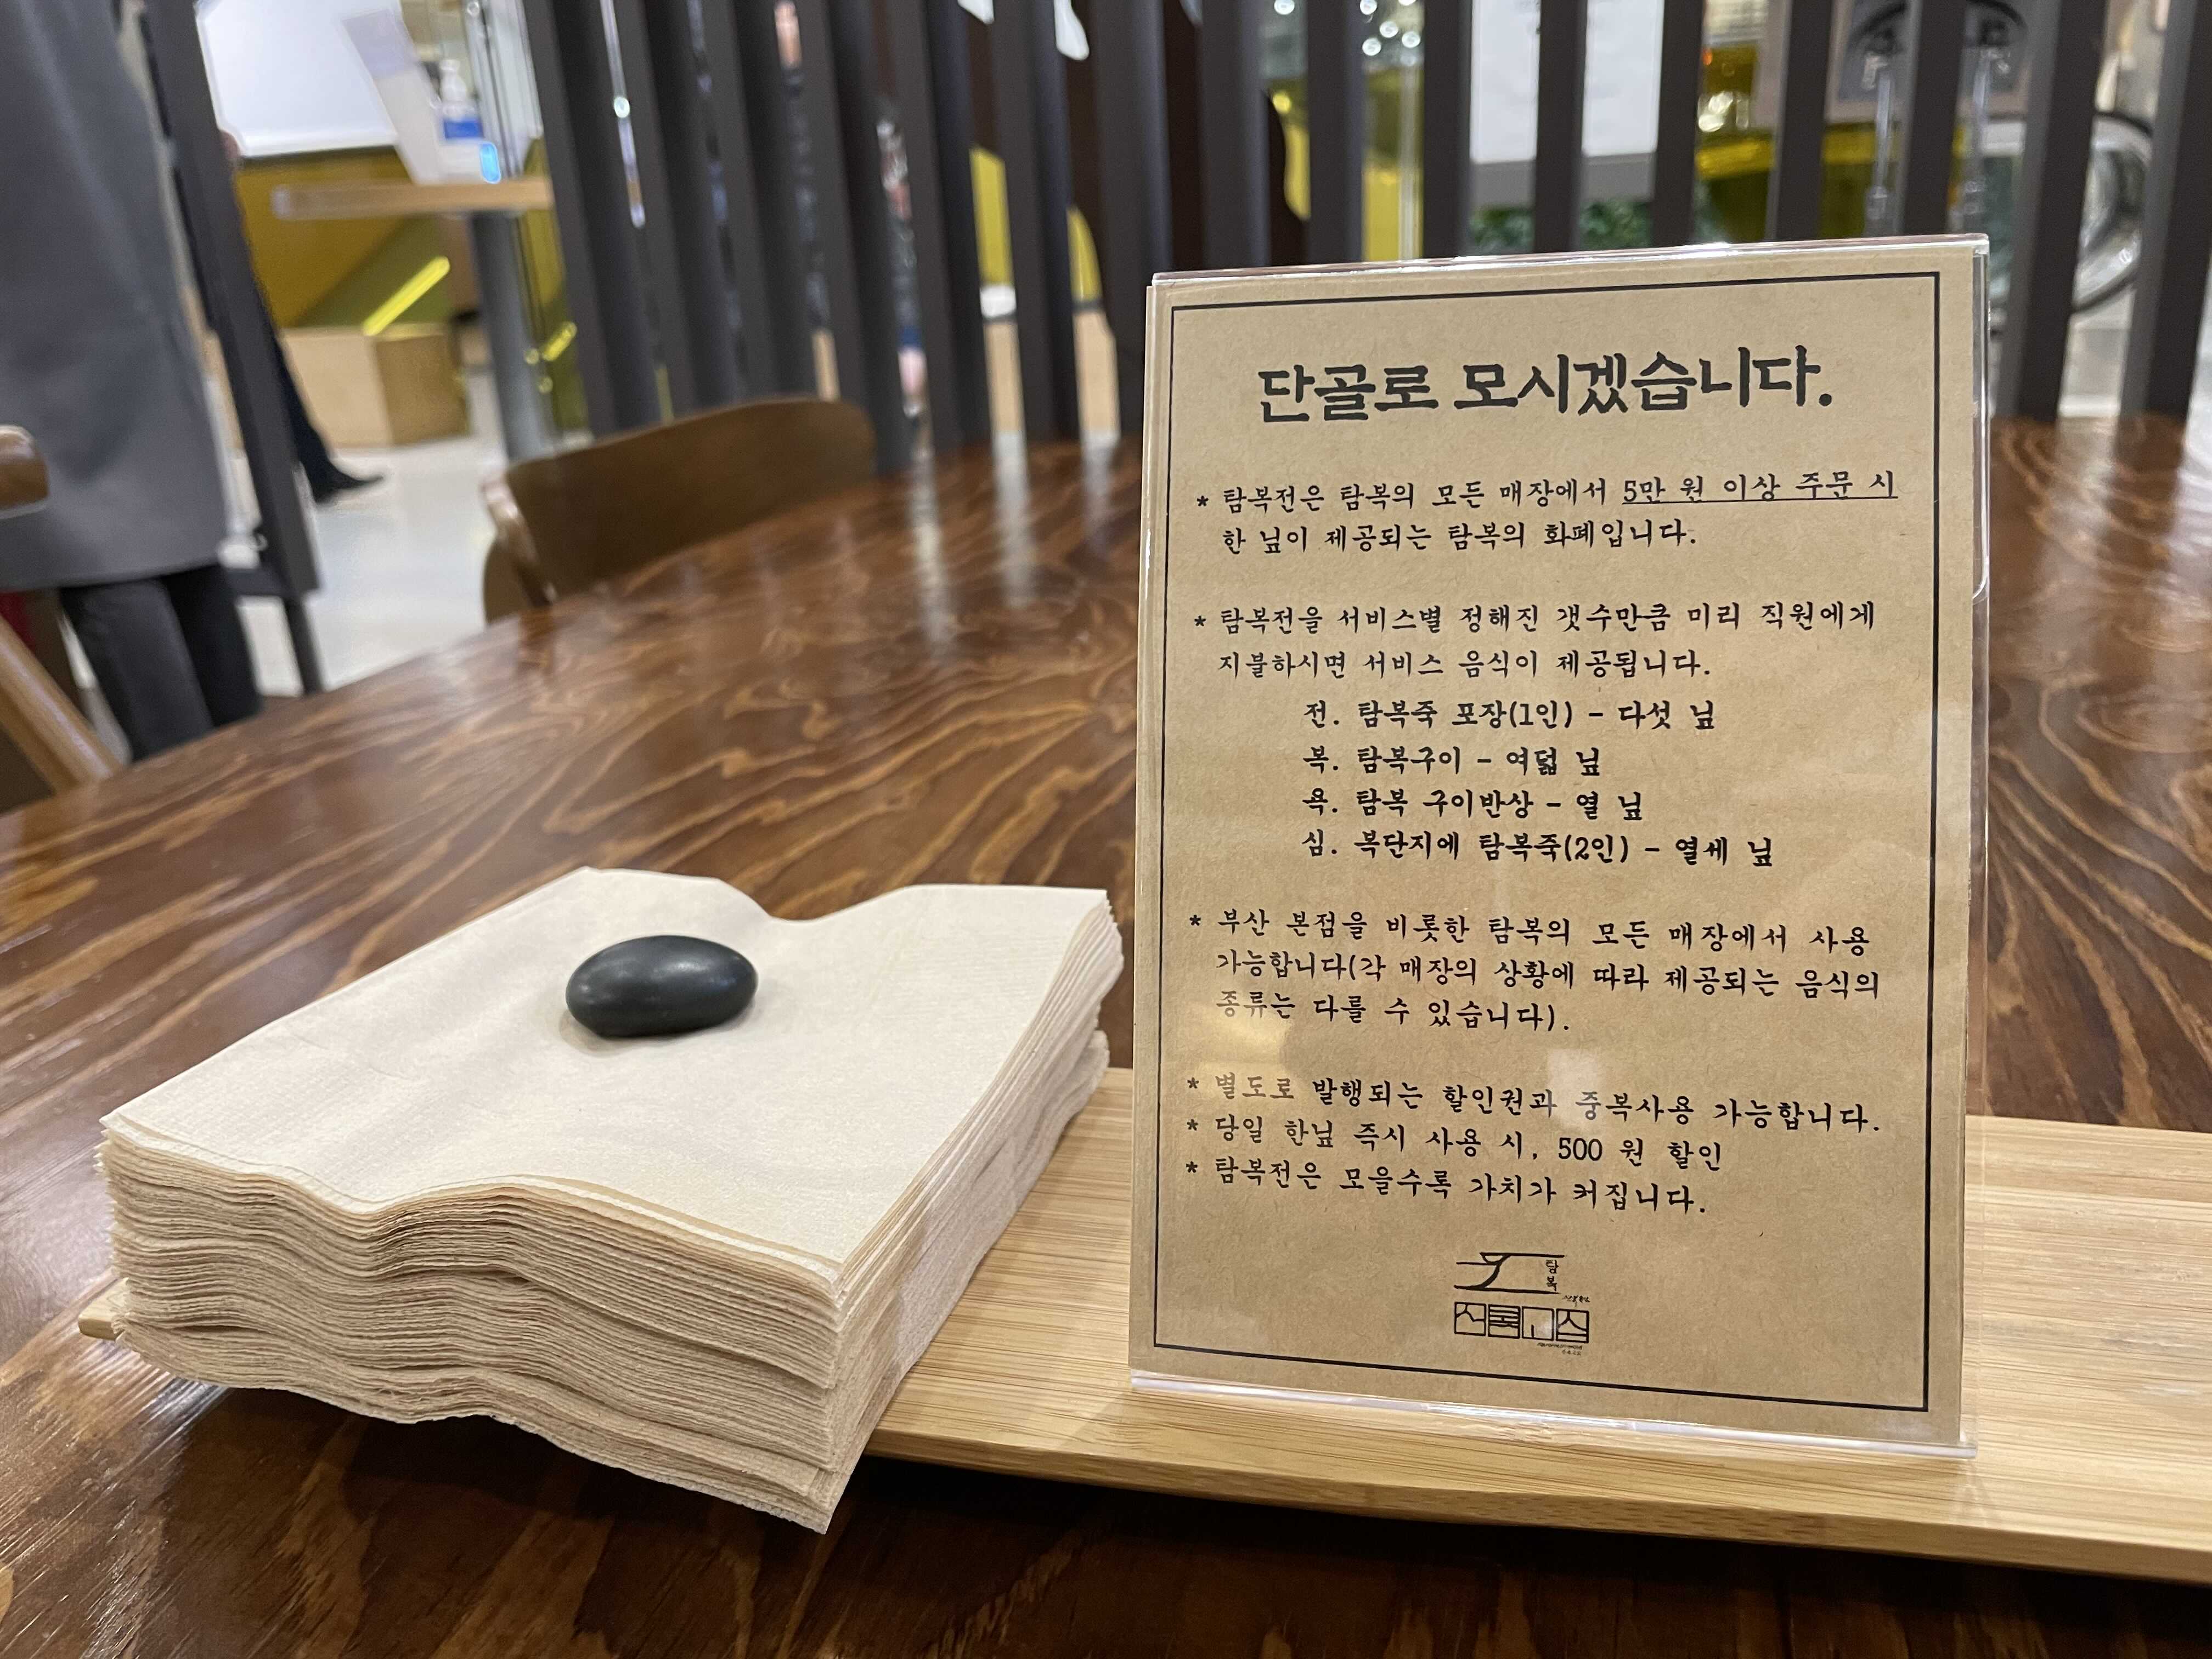 단골로 모시겠습니다.
* 탐복전은 탐복의 모든 매장에서 5만 원 이상 주문 시
한 닢이 제공되는 탐복의 화폐입니다.
* 탐복전을 서비스별 정해진 갯수만큼 미리 직원에게
지불하시면 서비스 음식이 제공됩니다.
전. 탐복죽 포장(1인) - 다섯 닢
복. 탐복구이 - 여덟 닢
욕. 탐복 구이반상 - 열 닢
심. 복단지에 탐복죽(2인) - 열세 닢
* 부산 본점을 비롯한 탐복의 모든 매장에서 사용
가능합니다(각 매장의 상황에 따라 제공되는 음식의
종류는 다를 수 있습니다).
* 별도로 발행되는 할인권과 중복사용 가능합니다.
* 당일 한닢 즉시 사용 시, 500 원 할인
* 탐복전은 모을수록 가치가 커집니다.
탐복